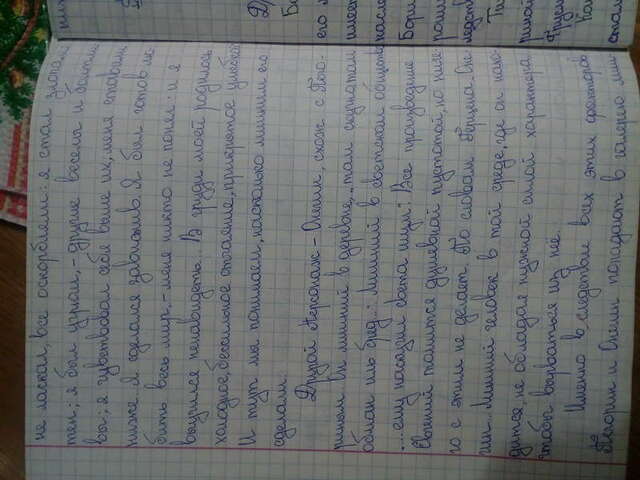 не ласкал, все оскорбляли: я стал злопамя
тен; я был угрюм, - другие веселы и болтли
вы; я чувствовал себя выше их, меня ставили
ниже. Я сделался завистлив. Я был готов лю
бить весь мир, - меня никто не понял: и я
выучился ненавидеть... В груди моей родилось
холодное, бессильное отчаяние, прикрытое улыбкой
И тут мы понимаем, насколько лишним его
сделали.
Другой персонаж - Онегин, схож с Печо-
риным. Он лишний в деревне,
обман иль бред...; лишний в светском обществе
...ему наскучил света шум; Все произведение
Евгений томится душевной пустотой, но ниче
го с этим не делает. По словам Герцена: Оне
гин - лишний человек в той среде, где он нахо-
дится, не обладая нужной силой характера,
чтобы вырваться из нее.
Именно в следствии всех этих факторов
Печорин и Онегин попадают в галерею лиш